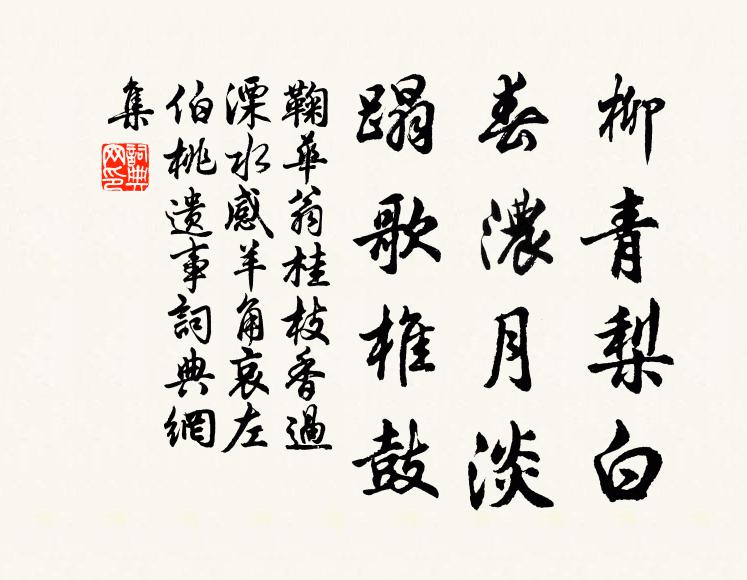 柳青梨白
春濃月淡
蹋歌椎鼓
鞠華翁桂枝香過
溧水感羊角哀左
伯桃遺事詞典網
集
詞典
网印